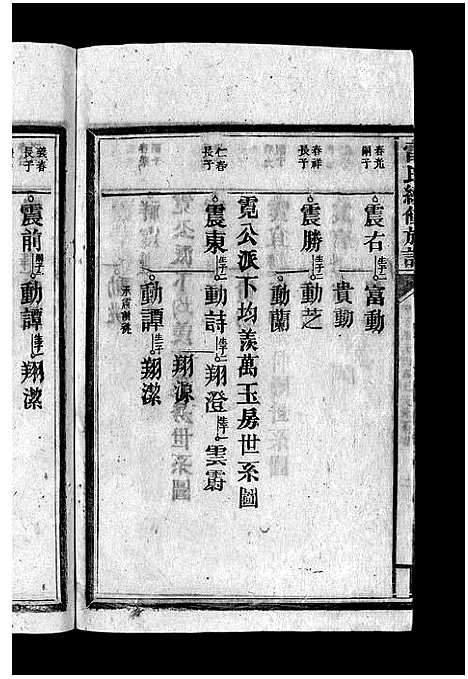 雷氏續修族譜
春光嗣子 震右 生子二 富動
貴動
春祥長子 震勝 生子二 動芝
動蘭
霓公派下均羨萬玉房世系圖
仁春長子 震東 生子二 動詩 生子二 翔澄 生子一 雲霨
翔源
動譚 生子一 翔潔
承震前祧
義春長子 震前 嗣子一 動譚 生子一 翔潔